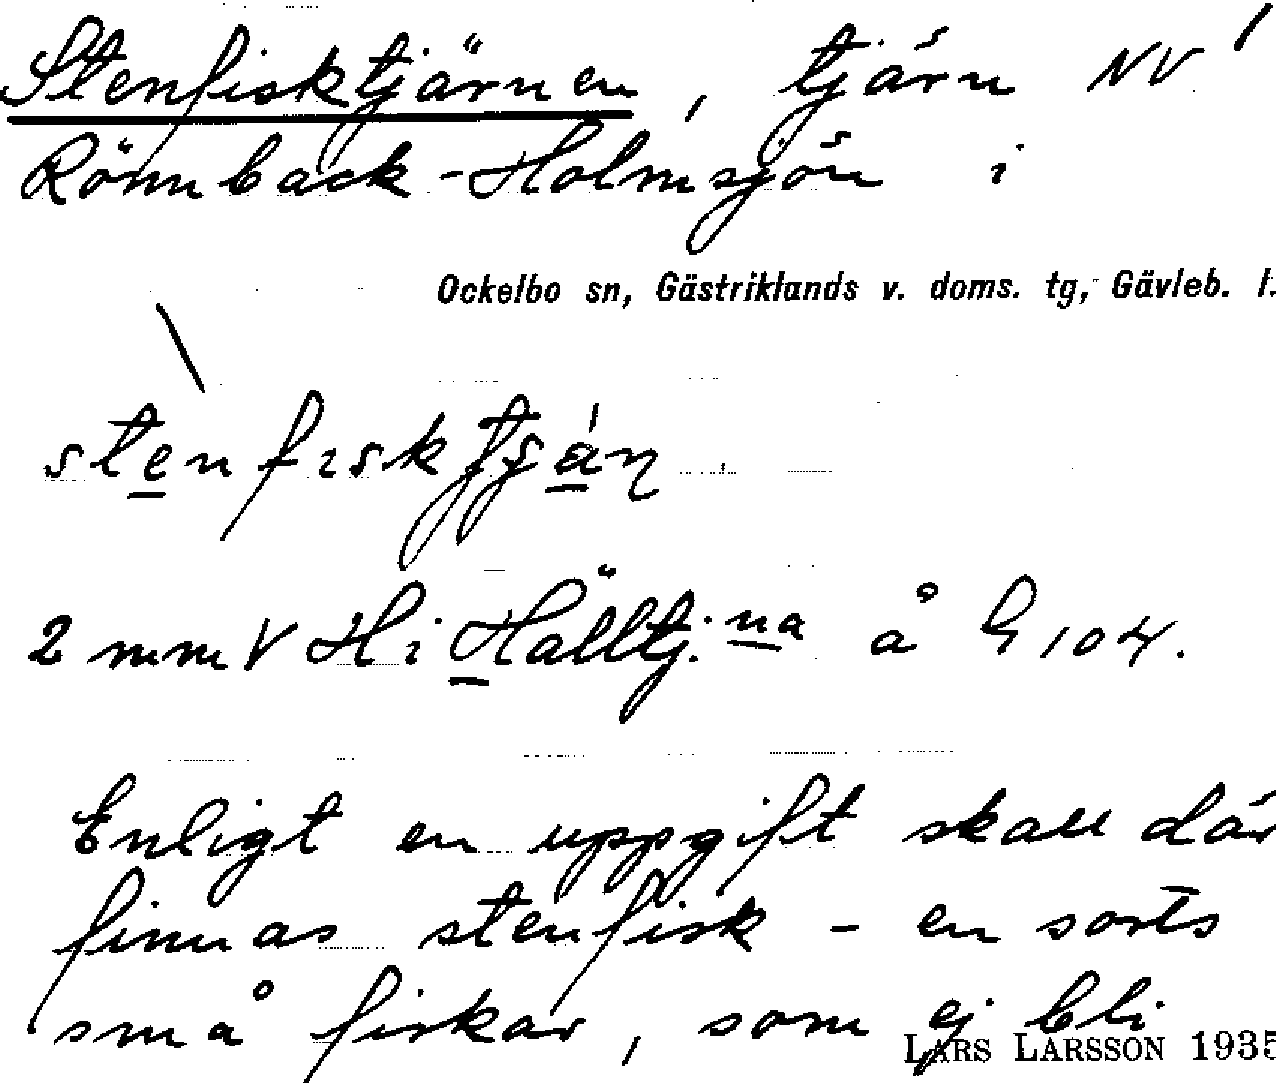 Stenfisktjärnen, tjärn NV
Rönnbäck-Holmsjön i
Ockelbo sn, Gästriklands v. doms. tg, Gävleb. l.
2 mm V H i Hälltj.na å G 104.
Enligt en uppgift skall där
finnas stenfisk - en sorts
små fiskar, som ej bli
LARS LARSSON 1935